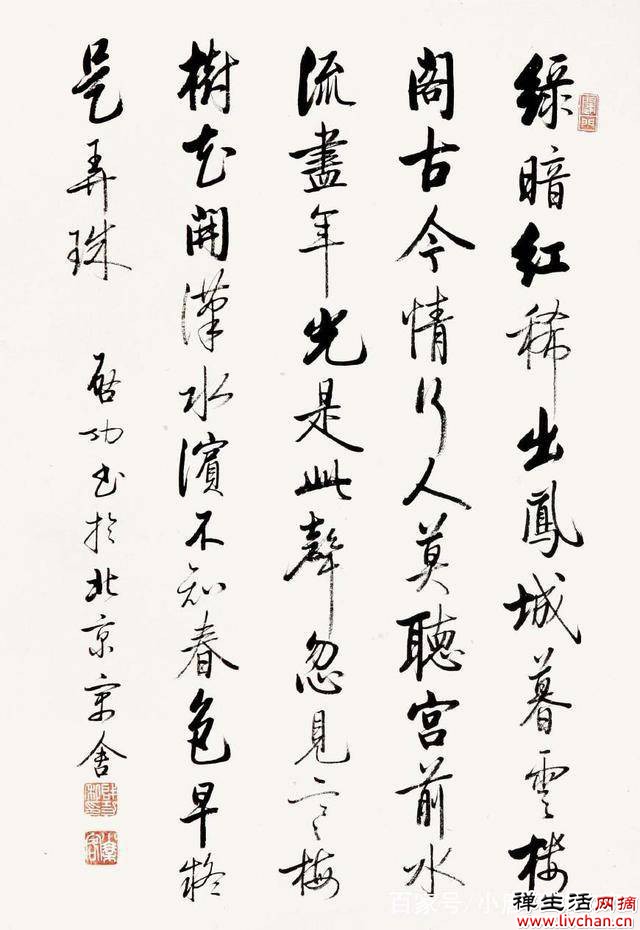 綠暗紅稀出鳳城暮雲樓
閣古今情行人莫聽宮前水
流盡年光是此聲忽見寒梅
樹花開漢水濱不知春色早疑
是弄珠 啟功書於北京寓舍
百家号/小
禅生活网摘
www.livchan.com